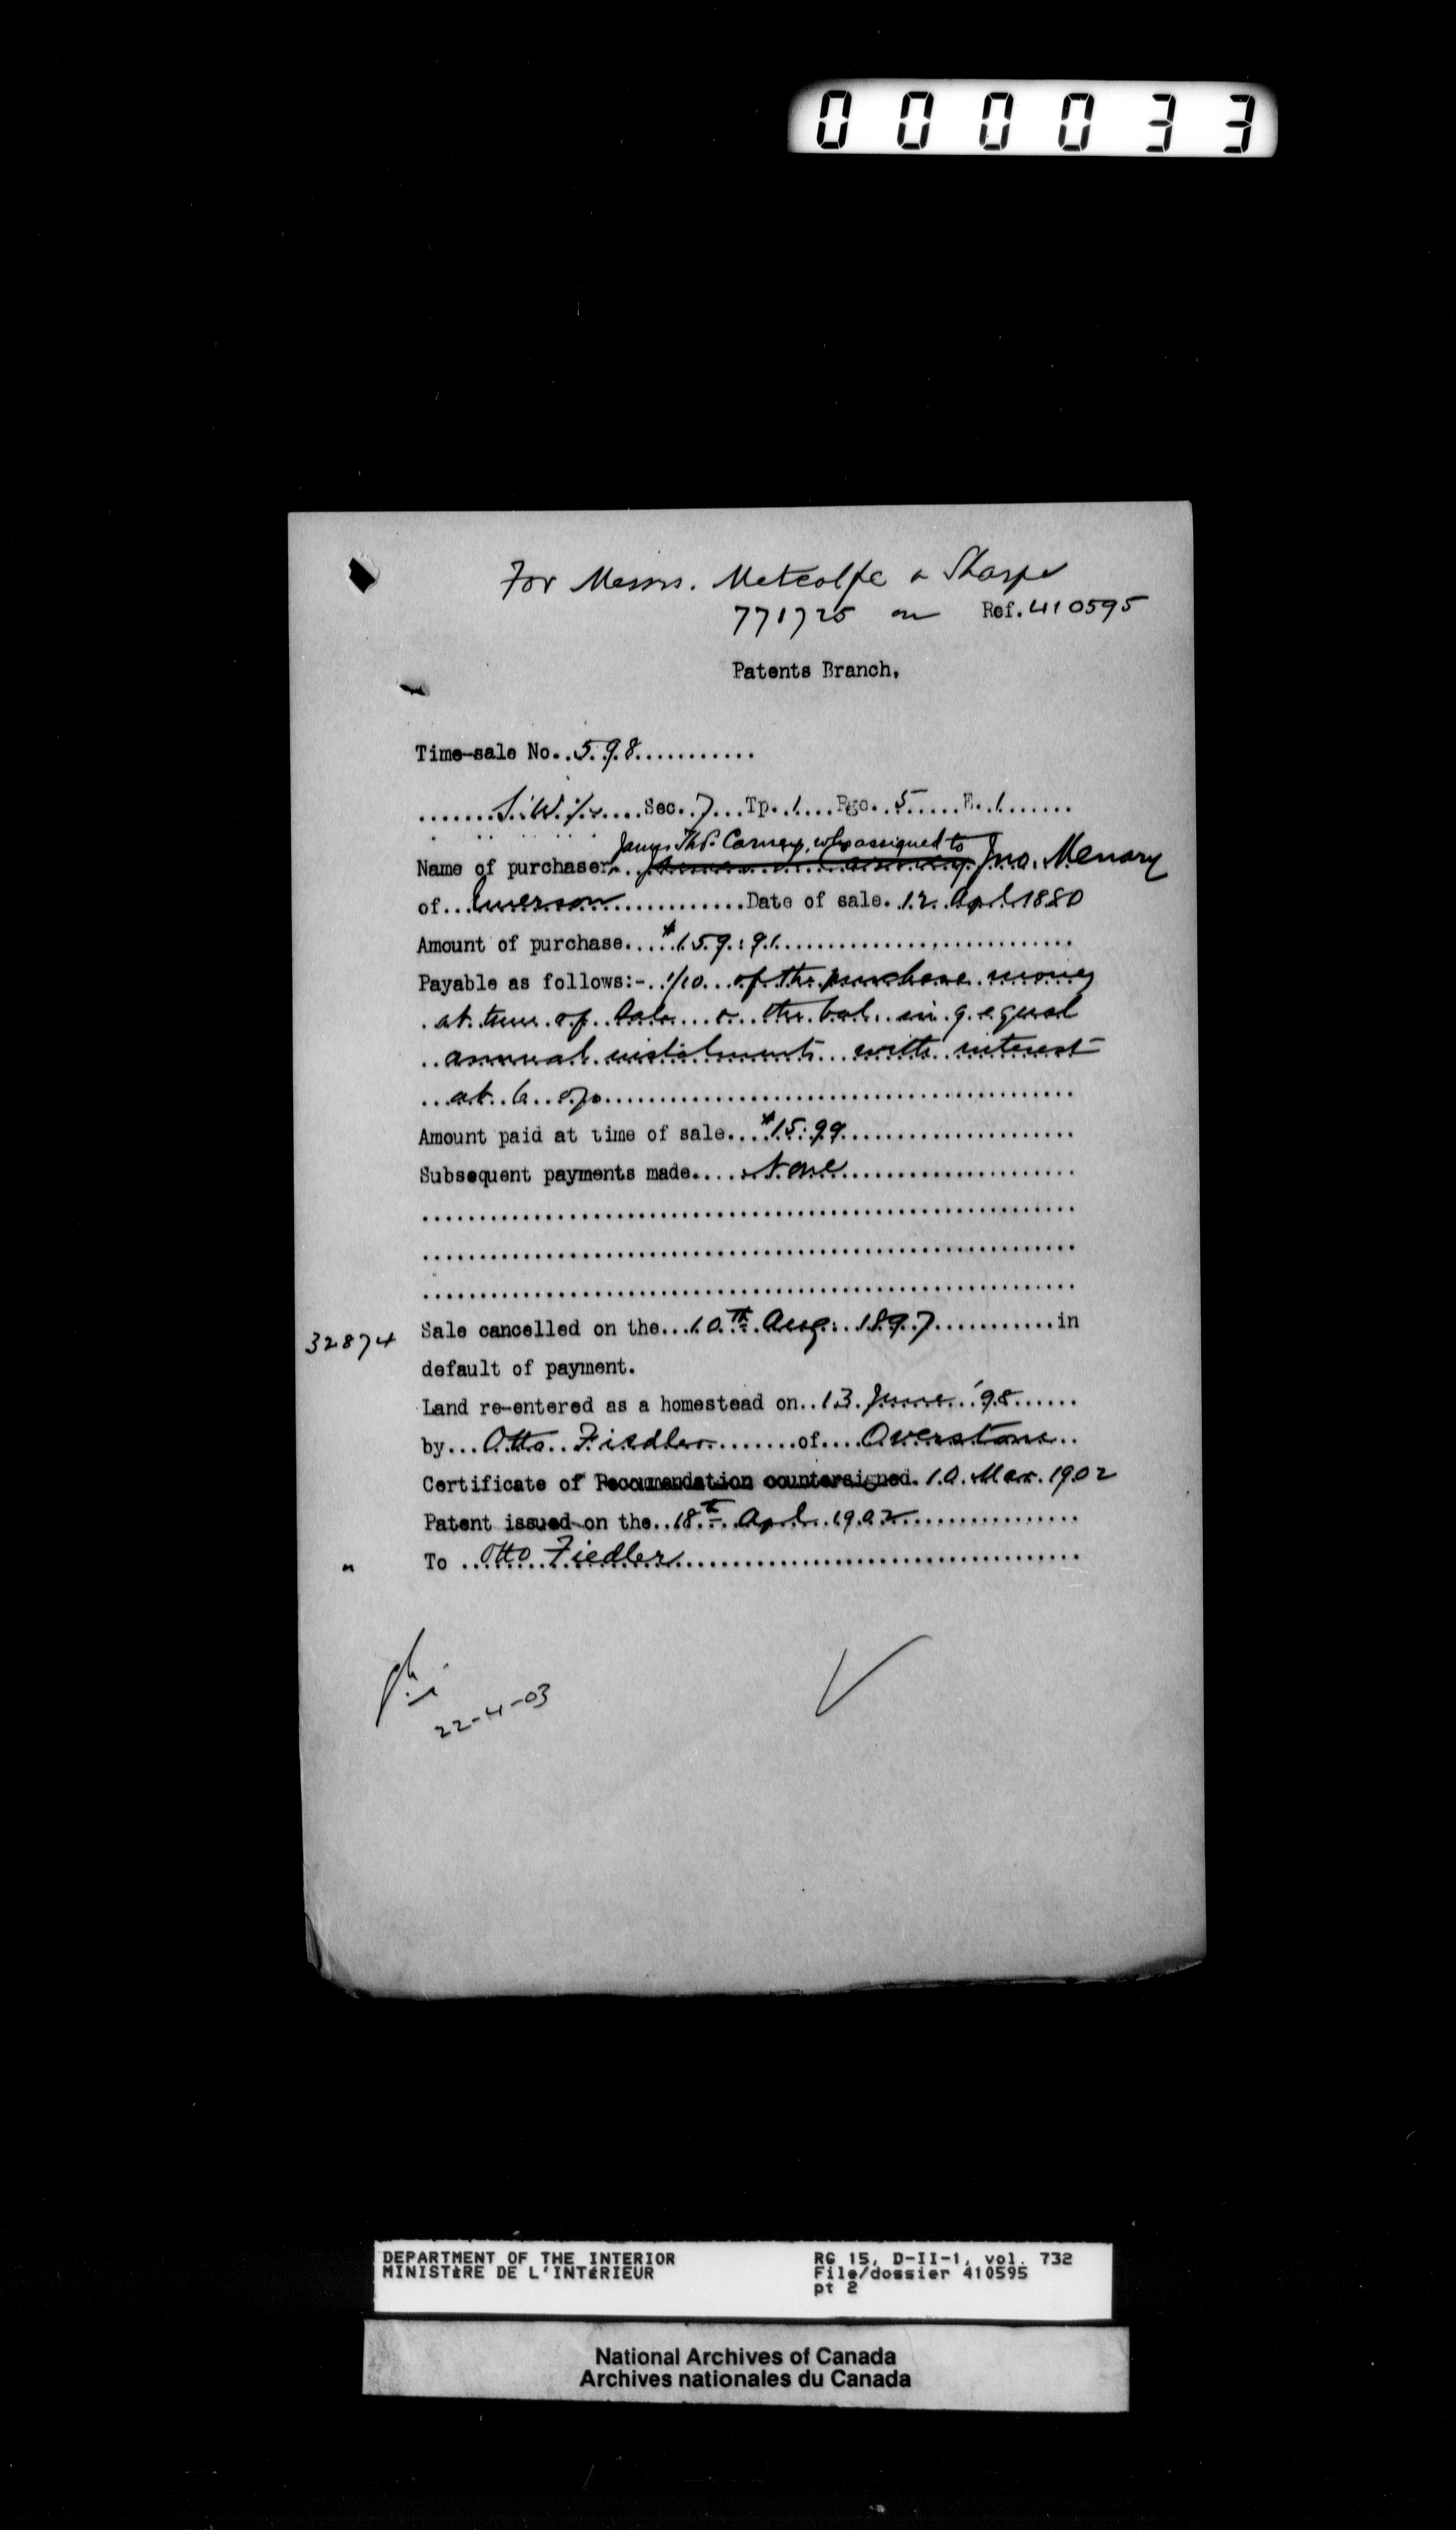 000033
For Messrs. Metcalfe & Sharpe
771725 on Ref. 410595
Patents Branch.
Time-sale No. 598
S.W.¼ Sec. 7 Tp. 1 Rge. 5 E. 1
James Thos. Carney, who assigned to
Name of purchaser Jno. Menary
of Emerson Date of sale. 12. Apl. 1880
Amount of purchase $159.91
Payable as follows:- 1/10 of the purchase money
at time of sale & the bal. in 9 equal
annual instalments with interest
at 6 %
Amount paid at time of sale $15.99
Subsequent payments made None
32874 Sale cancelled on the 10th Aug. 1897 in
default of payment.
Land re-entered as a homestead on 13 June '98
by Otto Fiedler of Overstone
Certificate of Recommendation countersigned. 10. Mar. 1902
Patent issued on the 18th Apl. 1902
To Otto Fiedler
22-4-03
DEPARTMENT OF THE INTERIOR RG 15, D-II-1, vol. 732
MINISTÈRE DE L'INTÉRIEUR File/dossier 410595
pt 2
National Archives of Canada
Archives nationales du Canada